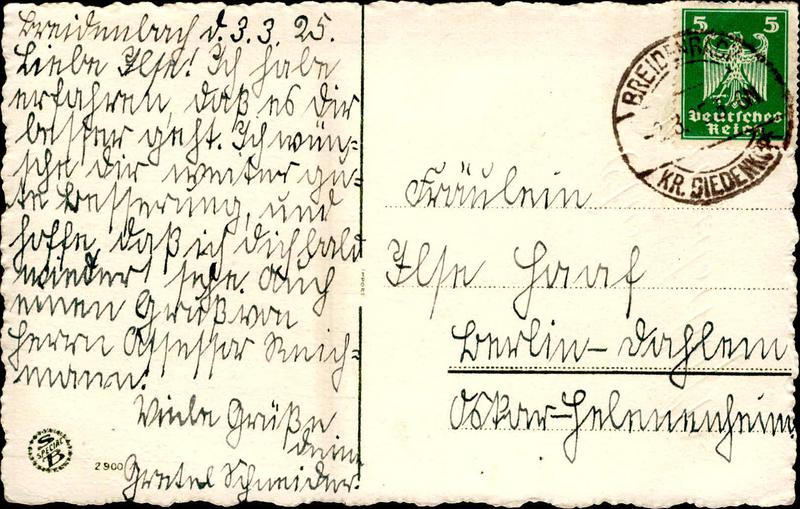 Breidenbach d. 3. 3. 25.
Liebe Ilse! Ich habe
erfahren, daß es dir
besser geht. Ich wün-
sche dir weiter gu-
te Besserung, und
hoffe, daß ich dich bald
wieder sehe. Auch
einen Gruß von
Herrn Assessor Reich-
mann!
Viele Grüße
deine
Gretel Schneider.
S
SPECIAL
B
2900
IMPORT
5 5
Deutsches
Reich
BREIDENBACH
KR. BIEDENKOPF
Fräulein
Ilse Haaf
Berlin-Dahlem
Oskar-Helenenheim